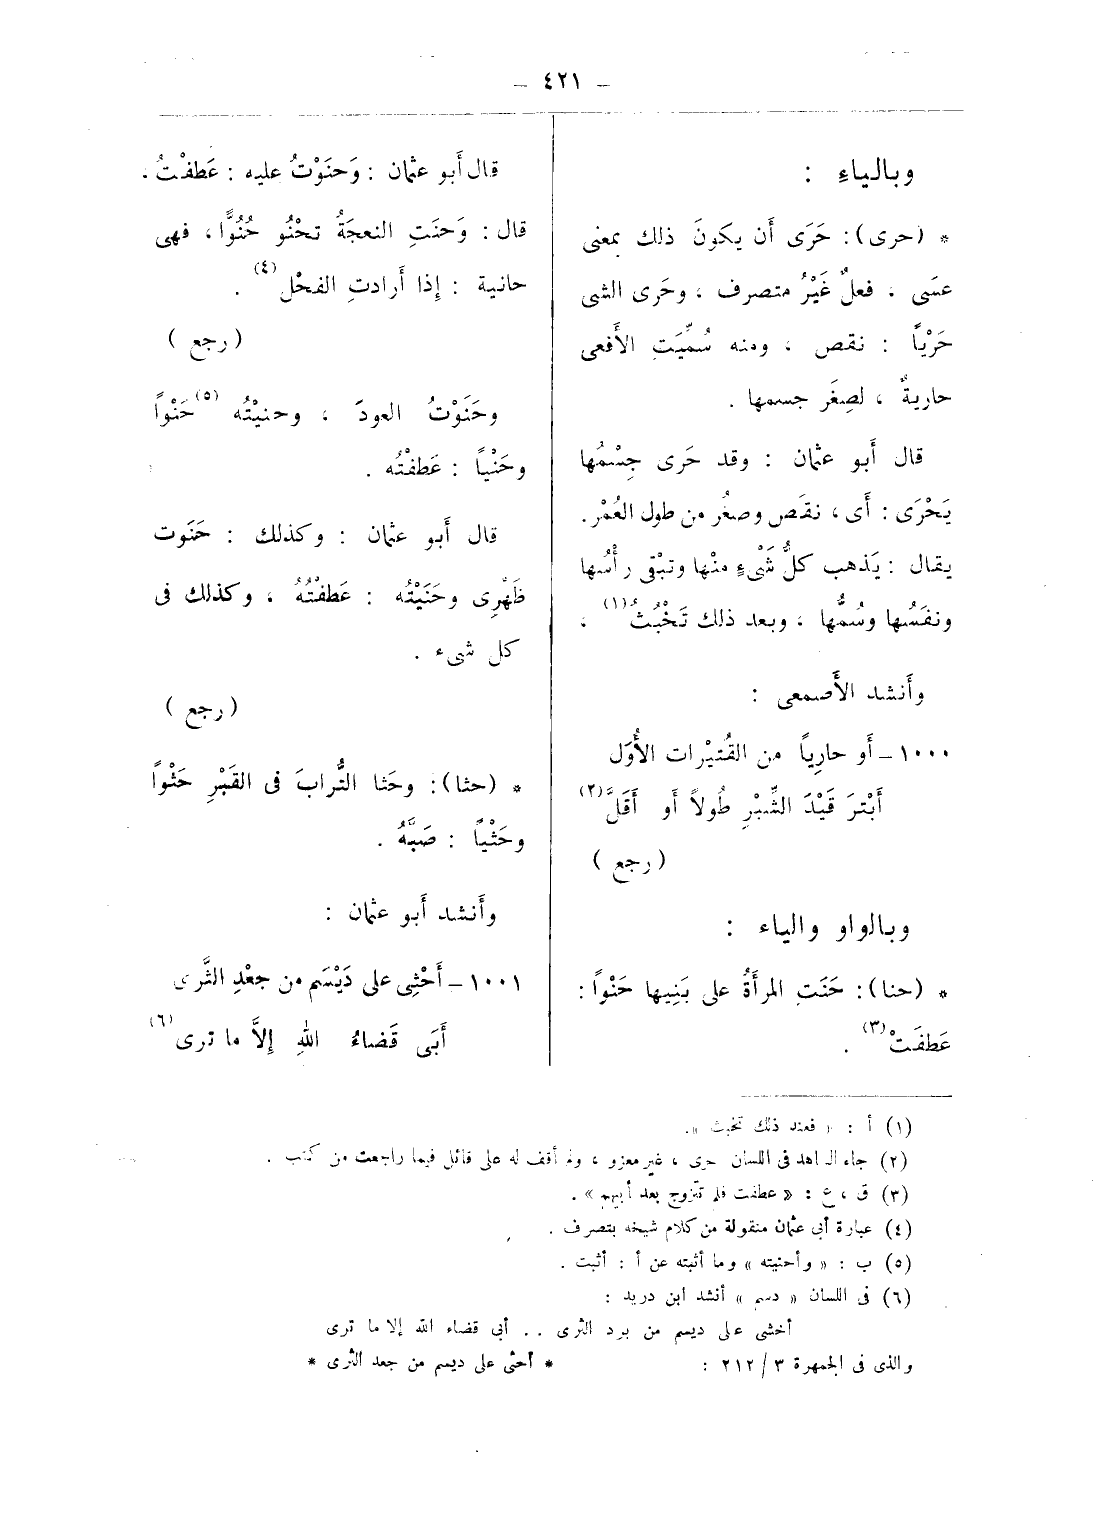 – ٤٢١ –
وبالياءِ :
* (حرى): حَرَى أَن يكونَ ذلك بمعنى
عسَى ، فعلٌ غَيْرُ متصرف ، وحَرى الشى
حَرْياً : نقص ، ومنه سُمِّيَتِ الأَفعى
حاريةٌ ، لصِغَر جسمها .
قال أَبو عثمان : وقد حَرى جِسْمُها
يَحْرَى : أَى ، نقَص وصغُر من طول العُمْر.
يقال : يَذهب كلُّ شَىْءٍ منْها وتبْقى رأْسُها
ونفَسُها وسُمُّها ، وبعد ذلك تَخْبُثُ(١) ،
وأَنشد الأَصمعى :
١٠٠٠ – أَو حارِياً من القُتيْرات الأُوَل
أَبْترَ قَيْدَ الشِّبْرِ طُولاً أَو أَقَلّ(٢)
( رجع )
وبالواو والياء :
* (حنا): حَنَتِ المرأَةُ على بَنِيها حَنْواً :
عَطفَتْ(٣) .
قال أَبو عثمان : وَحنَوْتُ عليه : عَطفْتُ .
قال : وَحنَتِ النعجَةُ تحْنُو حُنُوًّا ، فهى
حانية : إِذا أَرادتِ الفحْل(٤) .
( رجع )
وحَنَوْتُ العودَ ، وحنيْتُه(٥) حَنْواً
وحَنْياً : عَطفْتُه .
قال أَبو عثمان : وكذلك : حَنَوت
ظَهْرِى وحَنَيْتُه : عَطفْتُهُ ، وكذلك فى
كل شىء .
( رجع )
* (حثا): وحَثا التُّرابَ فى القَبْرِ حَثْواً
وحَثْياً : صَبَّهُ .
وأَنشد أَبو عثمان :
١٠٠١ – أَحْثِى على دَيْسَم من جعْدِ الثَّرى
أَبَى قَضاءُ اللهِ إِلاَّ ما ترى(٦)
(١) أ : « فعند ذلك تخبث ».
(٢) جاء الشاهد فى اللسان حرى ، غير معزو ، ولم أقف له على قائل فيما راجعت من كتب .
(٣) ق ، ع : « عطفت فلم تتزوج بعد أبيهم » .
(٤) عبارة أبى عثمان منقولة من كلام شيخه بتصرف .
(٥) ب : « وأحنيته » وما أثبته عن أ : أثبت .
(٦) فى اللسان « دسم » أنشد ابن دريد :
أخشى على ديسم من برد الثرى . . أبى قضاء الله إلا ما ترى
والذى فى الجمهرة ٣ / ٢١٢ : * أحثى على ديسم من جعد الثرى *